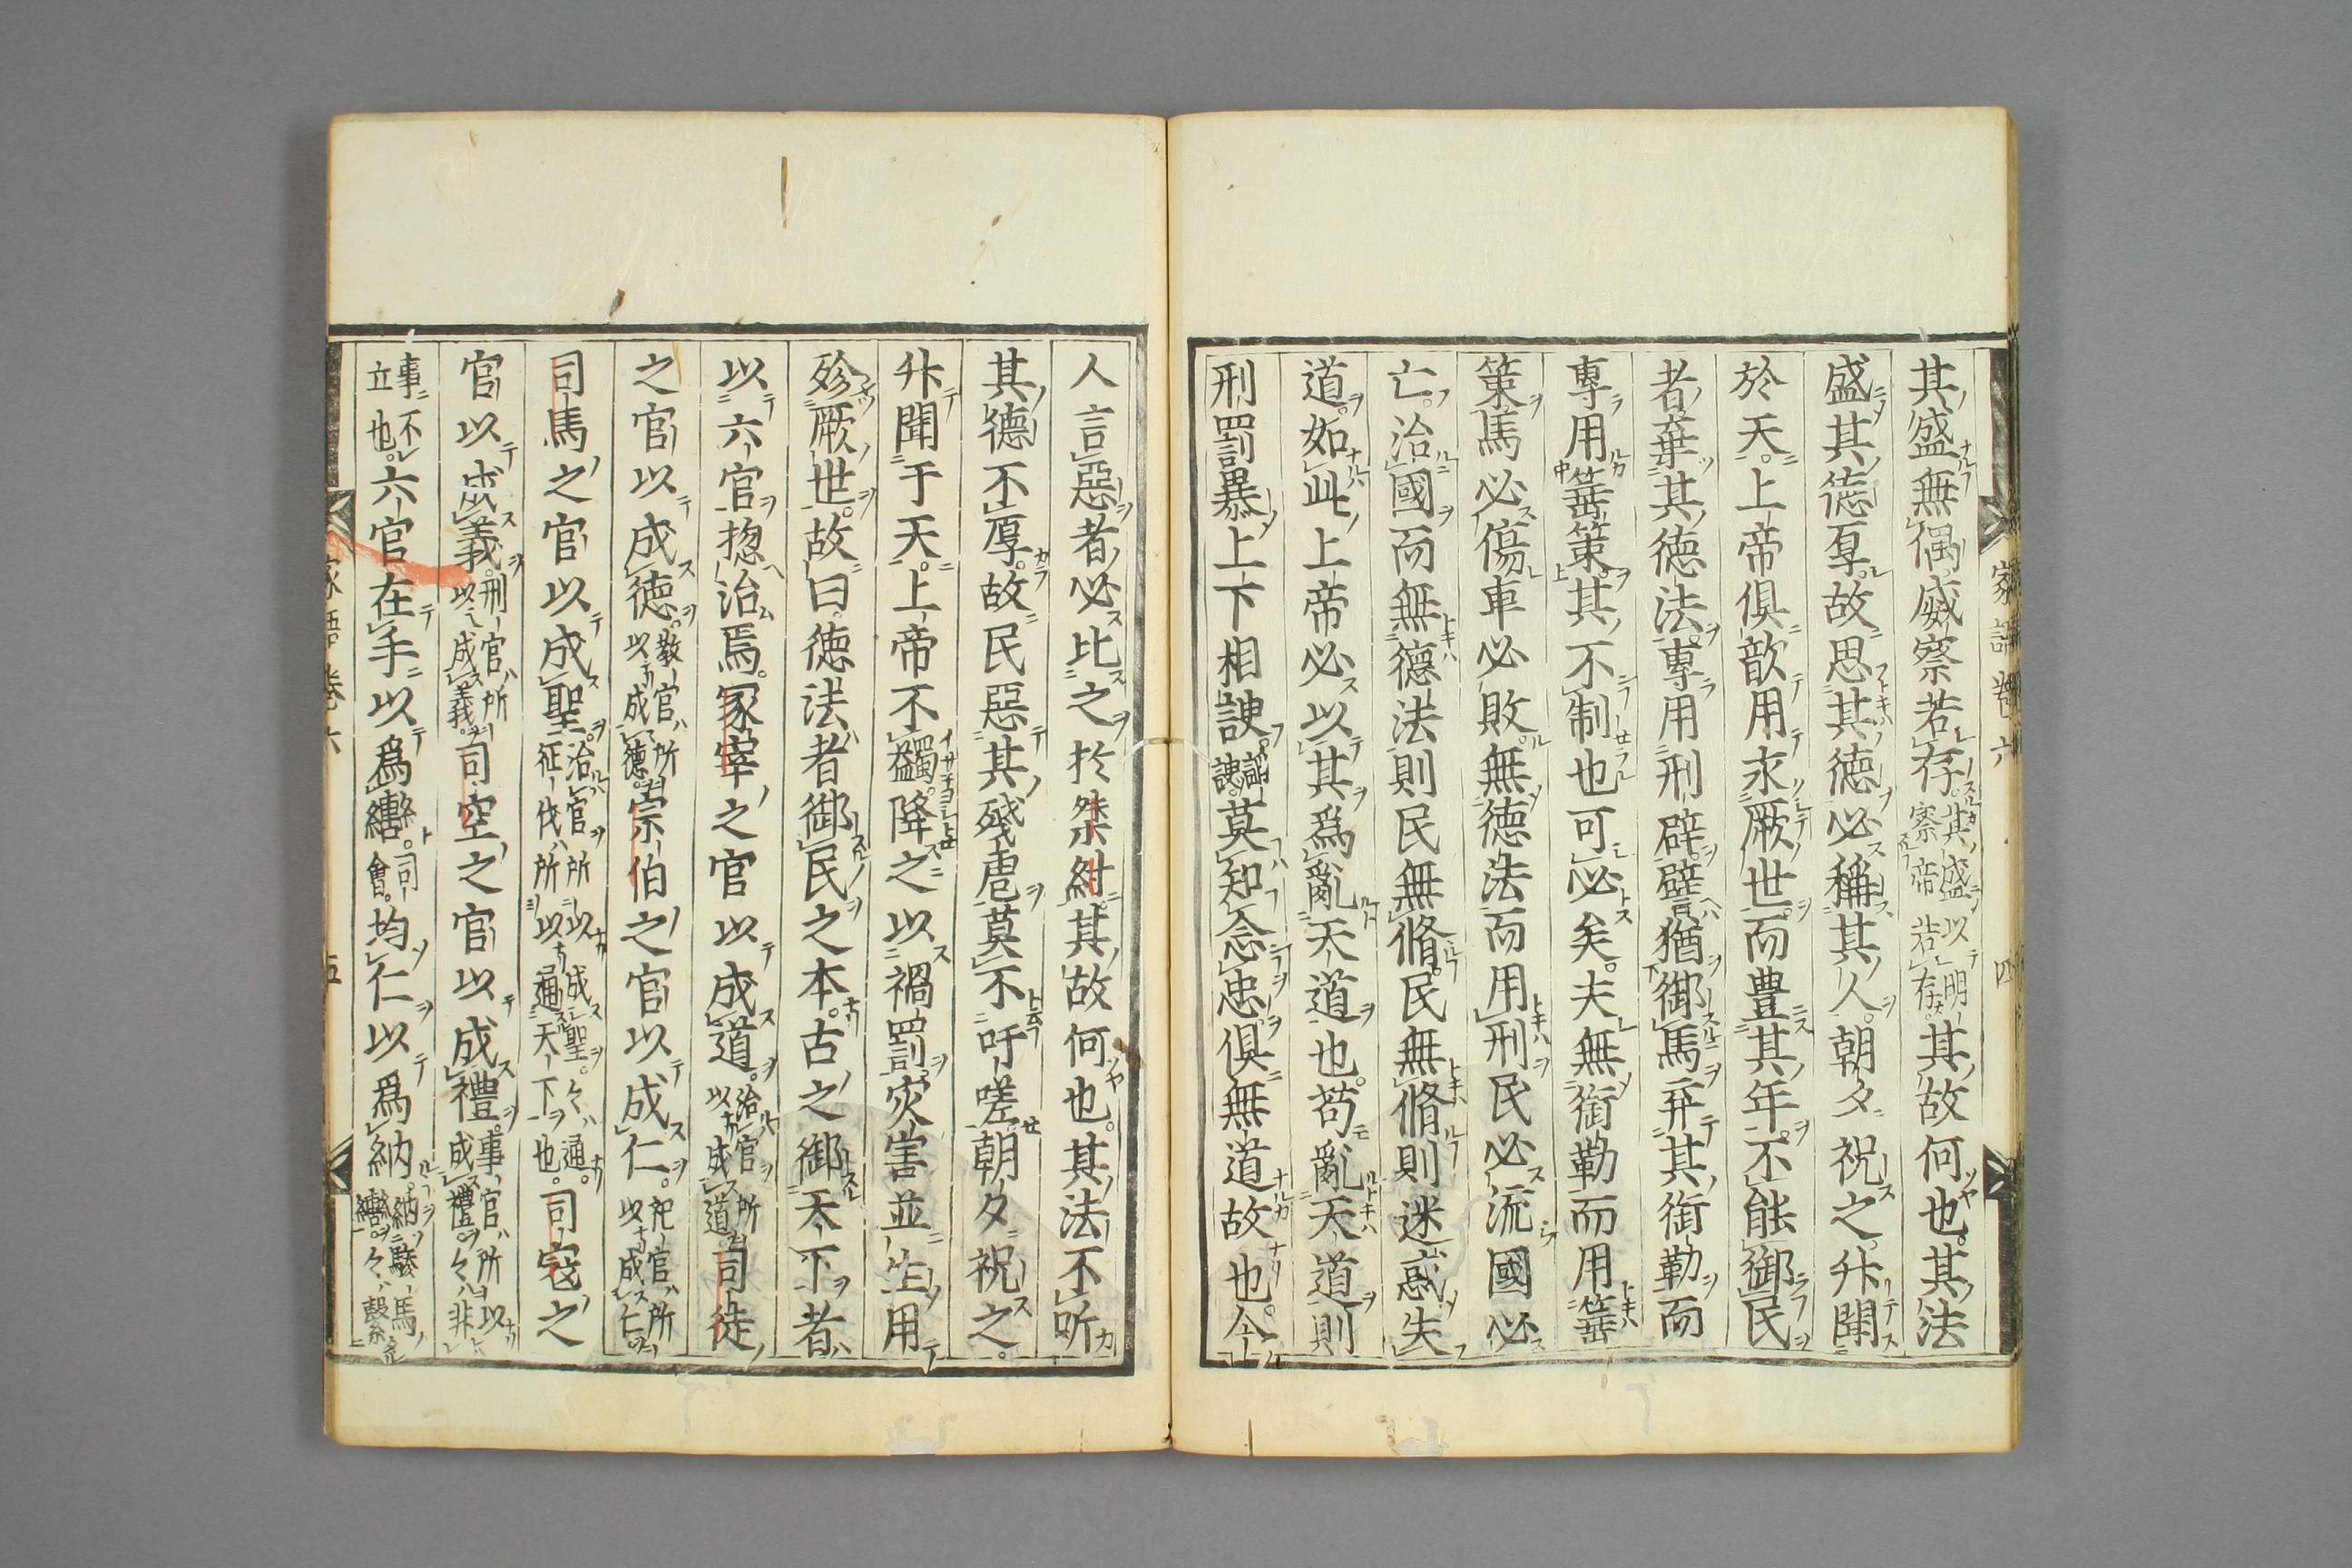 其盛無偶威察若存其盛以明察帝若存其故何也其法
盛其徳厚故思其徳必稱其人朝夕祝之升聞
於天上帝俱歆用求厥世而豊其年不能御民
者棄其徳法專用刑辟譬猶御馬弃其銜勒而
專用箠策其不制也可必矣夫無銜勒而用箠
策馬必傷車必敗無徳法而用刑民必流國必
亡治國而無德法則民無脩民無脩則迷惑失
道如此上帝必以其爲亂天道也苟亂天道則
刑罰暴上下相諛莫知念忠俱無道故也今
人言惡者必比之於桀紂其故何也其法不听
其德不厚故民惡其殘虐莫不吁嗟朝夕祝之
升聞于天上帝不蠲降之以禍罰灾害並生用
殄厥世故曰徳法者御民之本古之御天下者
以六官揔治焉冢宰之官以成道治官所以成道司徒
之官以成徳教官所以成德宗伯之官以成仁祀官所以成仁
司馬之官以成聖治官所以成聖々通征伐所以通天下也司寇之
官以成義刑官所以成義司空之官以成禮事官所以成禮々非
事不立也六官在手以爲轡司會均仁以爲納納驂馬轡々繫
家語卷六
四
五